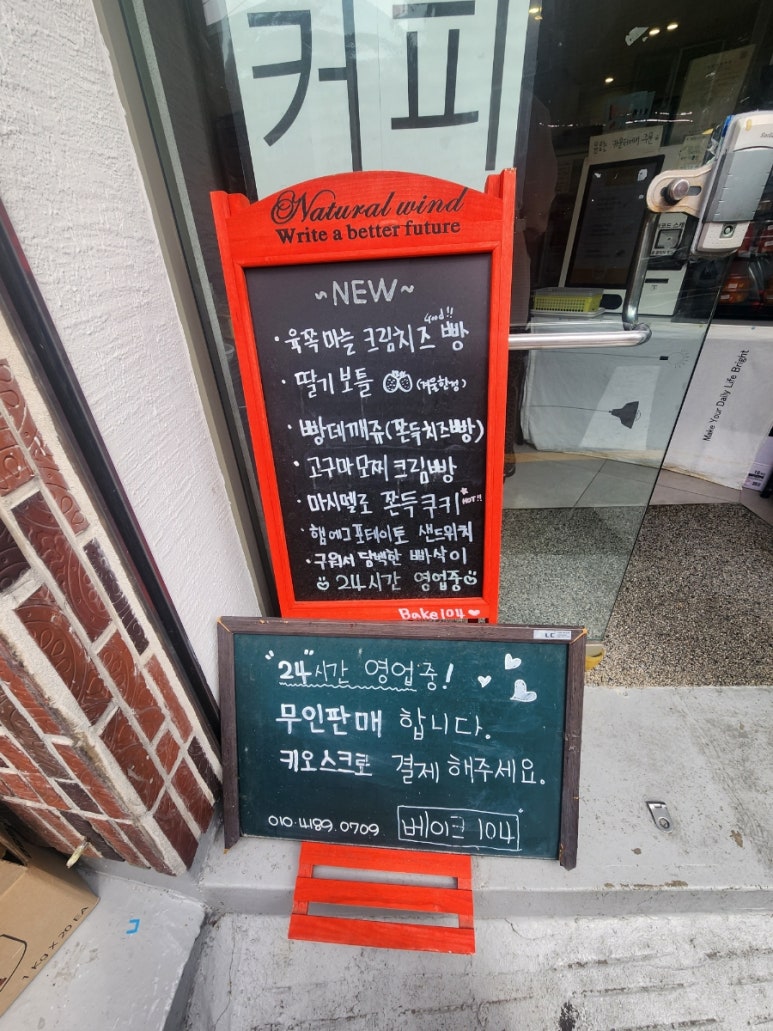 커피
Natural wind
Write a better future
~NEW~
· 육쪽마늘 크림치즈 빵 Good!!
· 딸기보틀 (겨울한정)
· 빵데깨쥬(쫀득치즈빵)
· 고구마모찌크림빵
· 마시멜로 쫀득쿠키 HOT!!
· 햄에그포테이토 샌드위치
· 구워서 담백한 빠삭이
24시간 영업중
Bake104
"24"시간 영업중!
무인판매 합니다.
키오스크로 결제 해주세요.
010.4189.0709 베이크 104
Make Your Daily Life Bright
1 KG X 20 EA